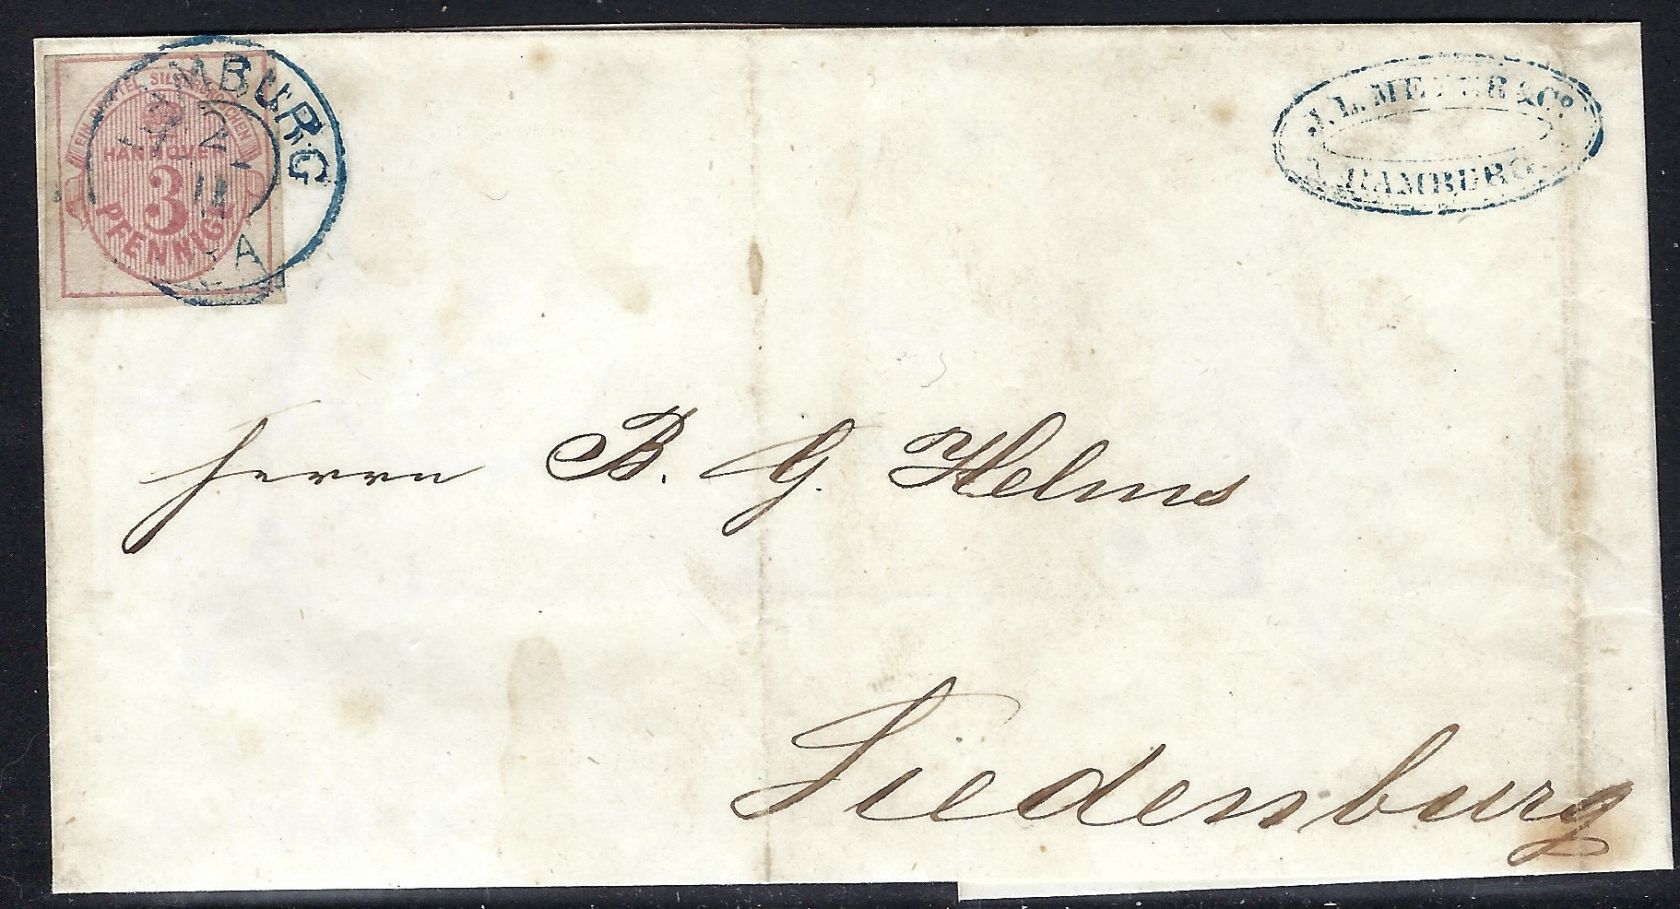 EIN DRITTEL SILBERGROSCHEN
HANNOVER
3
PFENNIGE
HAMBURG
J. L. MEYER & Co.
HAMBURG
Herrn B. G. Helms
Siedenburg